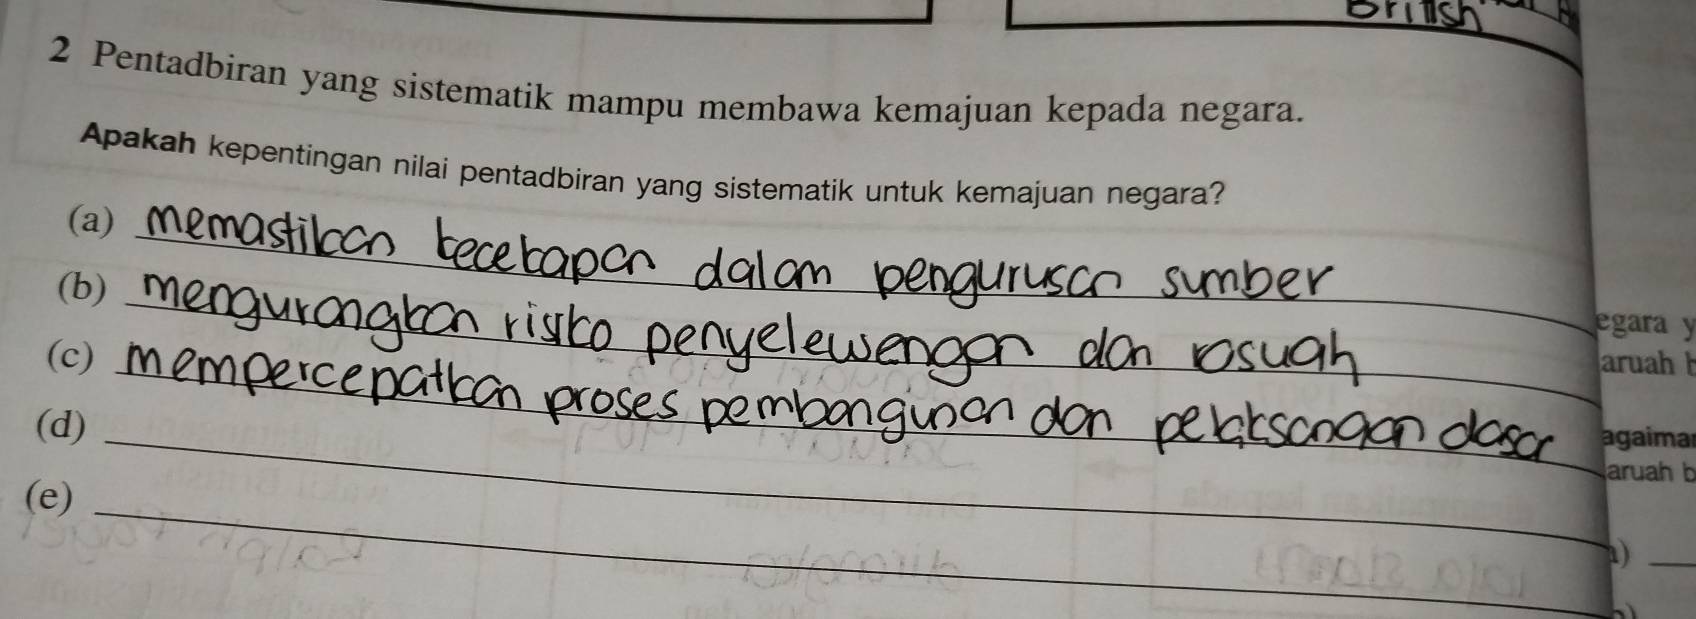 British
2 Pentadbiran yang sistematik mampu membawa kemajuan kepada negara.
Apakah kepentingan nilai pentadbiran yang sistematik untuk kemajuan negara?
(a) memastikan kecekapan dalam pengurusan sumber
(b) mengurangkan risiko penyelewengan dan rosuah
(c) mempercepatkan proses pembangunan dan pelaksanaan dasar
(d)
(e)
egara y
aruah b
agaiman
aruah b